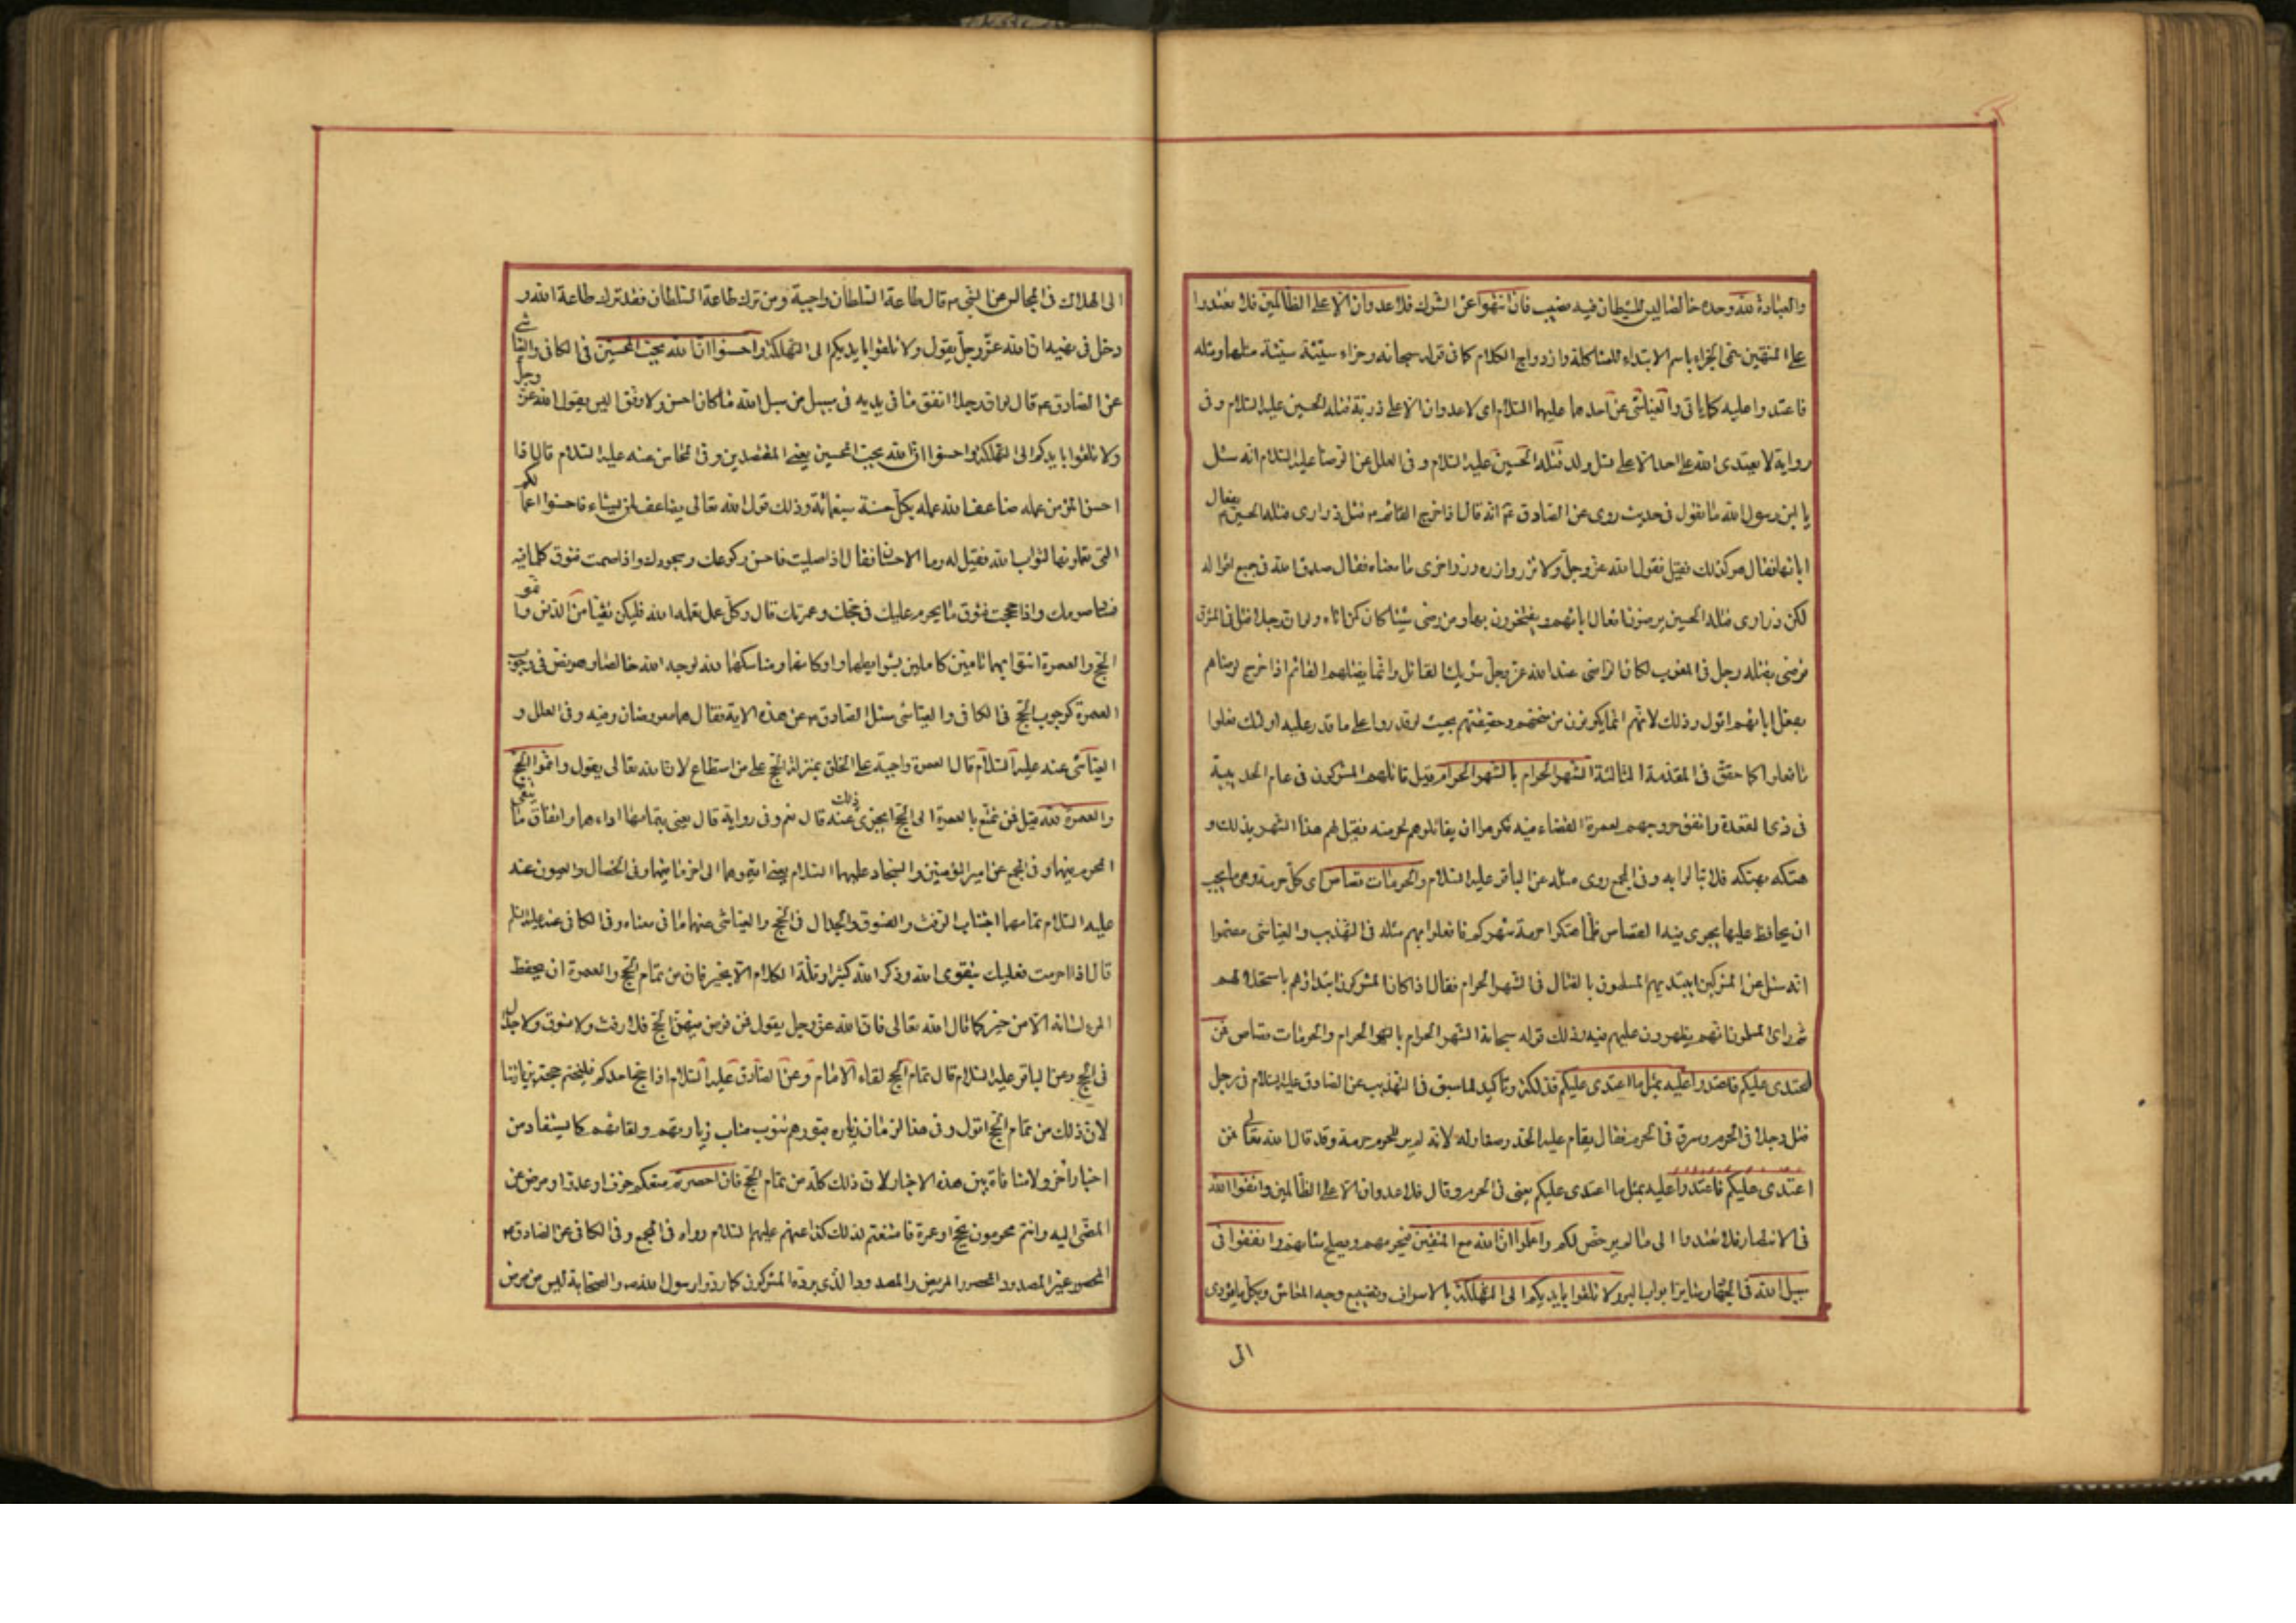 والعبادة لله وحده خالصا ليس للشيطان فيه نصيب فان انتهوا عن الشرك فلا عدوان الا على الظالمين فلا تعتدوا
على المنتهين سمى الجزاء باسم الابتداء للمشاكلة وازدواج الكلام كما في قوله سبحانه وجزاء سيئة سيئة مثلها ومثله
فاعتدوا عليه كما ياتي والعياشي عن احدهما عليهما السلام اى لا عدوان الا على ذرية قتلة الحسين عليه السلام وفي
رواية لا يعتدى الله على احد الا على نسل ولد قتلة الحسين عليه السلام و في العلل عن الرضا عليه السلام انه سئل
يا ابن رسول الله ما تقول في حديث روى عن الصادق ع انه قال اذا خرج القائم م قتل ذرارى قتلة الحسين م بفعال
ابائها فقال هو كذلك فقيل فقول الله عز وجل ولا تزر وازرة وزر اخرى ما معناه فقال صدق الله في جميع اقواله
لكن ذرارى قتلة الحسين يرضون افعال ابائهم ويفتخرون بها ومن رضى شيئا كان كمن اتاه ولو ان رجلا قتل في المشرق
فرضى بقتله رجل في المغرب لكان الراضى عند الله عز وجل شريك القاتل وانما يقتلهم القائم اذا خرج لرضاهم
بفعل ابائهم اقول وذلك لانهم انما يكونون من سنخهم وحقيقتهم بحيث لو قدروا على ما قدر عليه اولئك فعلوا
ما فعلوا كما حقق في المقدمة الثالثة الشهر الحرام بالشهر الحرام قيل قاتلهم المشركون في عام الحديبية
في ذى القعدة واتفق خروجهم لعمرة القضاء فيه فكرهوا ان يقاتلوهم لحرمته فقيل لهم هذا الشهر بذلك و
هتكه بهتكه فلا تبالوا به وفي المجمع روى مثله عن الباقر عليه السلام والحرمات قصاص اى كل حرمة وهي ما يجب
ان يحافظ عليها يجرى فيها القصاص فلما هتكوا حرمة شهركم فافعلوا بهم مثله في التهذيب والعياشي
انه سئل عن المشركين ايبتديهم المسلمون بالقتال في الشهر الحرام فقال اذا كان المشركون ابتداؤهم باستحلالهم
ثم راى المسلمون انهم يظهرون عليهم فيه وذلك قوله سبحانه الشهر الحرام بالشهر الحرام والحرمات قصاص فمن
اعتدى عليكم فاعتدوا عليه بمثل ما اعتدى عليكم فذلكة وتاكيد لما سبق في التهذيب عن الصادق عليه السلام في رجل
قتل رجلا في الحرم وسرق في الحرم فقال يقام عليه الحد وصغار له لانه لم ير للحرم حرمة وقد قال الله تعالى فمن
اعتدى عليكم فاعتدوا عليه بمثل ما اعتدى عليكم يعنى في الحرم وقال فلا عدوان الا على الظالمين واتقوا الله
في الانتصار فلا تعتدوا الى ما لم يرخص لكم واعلموا ان الله مع المتقين فيحرسهم ويصلح شانهم وانفقوا في
سبيل الله في الجهاد وساير ابواب البر ولا تلقوا بايديكم الى التهلكة بالاسراف وتضييع وجه المعاش وبكل ما يؤدى
الى
الى الهلاك في المجالس عن النبي م قال طاعة السلطان واجبة ومن ترك طاعة السلطان فقد ترك طاعة الله و
دخل في نهيه ان الله عز وجل يقول ولا تلقوا بايديكم الى التهلكة واحسنوا ان الله يحب المحسنين في الكافي والعياشي
عن الصادق ع قال لو ان رجلا انفق ما في يديه في سبيل من سبل الله ما كان احسن ولا وفق اليس يقول الله عز وجل
ولا تلقوا بايديكم الى التهلكة واحسنوا ان الله يحب المحسنين يعنى المقتصدين وفي المحاسن عنه عليه السلام قال اذا
احسن المؤمن عمله ضاعف الله عمله بكل حسنة سبعمائة وذلك قول الله تعالى يضاعف لمن يشاء فاحسنوا اعمالكم
التي تعملونها لثواب الله فقيل له وما الاحسان فقال اذا صليت فاحسن ركوعك وسجودك واذا صمت فتوق كلما فيه
فساد صومك واذا حججت فتوق ما يحرم عليك في حجك وعمرتك قال وكل عمل تعمله لله فليكن نقيا من الدنس واتموا
الحج والعمرة ائتوا بهما تامين كاملين بشرايطهما واركانهما ومناسكهما لله لوجه الله خالصا وهو نص في وجوب
العمرة كوجوب الحج في الكافي والعياشي سئل الصادق م عن هذه الاية فقال هما مفروضان وفيه وفي العلل و
العياشي عنه عليه السلام قال العمرة واجبة على الخلق بمنزلة الحج على من استطاع لان الله تعالى يقول واتموا الحج
والعمرة لله قيل فمن تمتع بالعمرة الى الحج ايجزى ذلك عنه قال نعم وفي رواية قال يعنى بتمامهما اداءهما واتقاء ما يتقى
المحرم فيهما وفي المجمع عن امير المؤمنين والسجاد عليهما السلام يعنى اقيموهما الى اخر ما فيهما وفي الخصال والعيون عنه
عليه السلام تمامهما اجتناب الرفث والفسوق والجدال في الحج والعياشي عنهما ما في معناه وفي الكافي عنه عليه السلام
قال اذا احرمت فعليك بتقوى الله وذكر الله كثيرا وقلة الكلام الا بخير فان من تمام الحج والعمرة ان يحفظ
المرء لسانه الا من خير كما قال الله تعالى فان الله عز وجل يقول فمن فرض فيهن الحج فلا رفث ولا فسوق ولا جدال
في الحج وعن الباقر عليه السلام قال تمام الحج لقاء الامام وعن الصادق عليه السلام اذا حج احدكم فليختم حجه بزيارتنا
لان ذلك من تمام الحج اقول وفي هذا الزمان زيارة قبورهم تنوب مناب زيارتهم ولقائهم كما يستفاد من
اخبار اخر ولا منافاة بين هذه الاخبار لان ذلك كله من تمام الحج فان احصرتم منعكم خوف او عدو او مرض عن
المضى اليه وانتم محرمون بحج او عمرة فامتنعتم لذلك كذا عنهم عليهم السلام رواه في المجمع وفي الكافي عن الصادق م
المحصور غير المصدود المحصور المريض والمصدود الذى يرده المشركون كما ردوا رسول الله ص والصحابة ليس من مرض